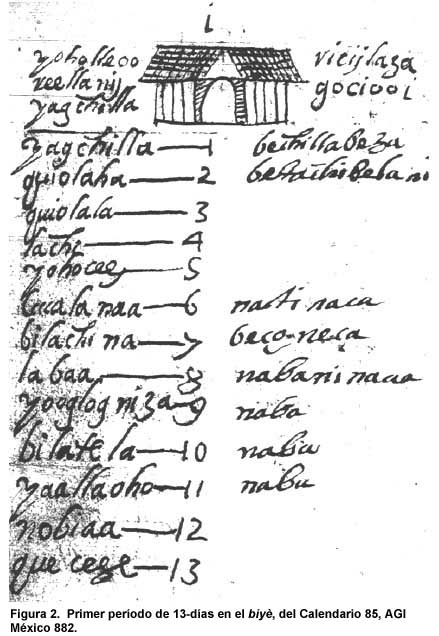 i
yoholleoo
reellanij
yagchilla
vicijlaza
gociooi
yagchilla — 1 bechillabeza
quiolaha — 2
quiolala — 3
lachi — 4
yohocee — 5
lanaa — 6 nacti naca
bilachina — 7 beco neça
labaa — 8 nabani naca
yooglog niza — 9 naba
bilatela — 10 naba
yaallaoho — 11 naba
nobiaa — 12
que ceze — 13
Figura 2. Primer período de 13-días en el biyè, del Calendario 85, AGI
México 882.